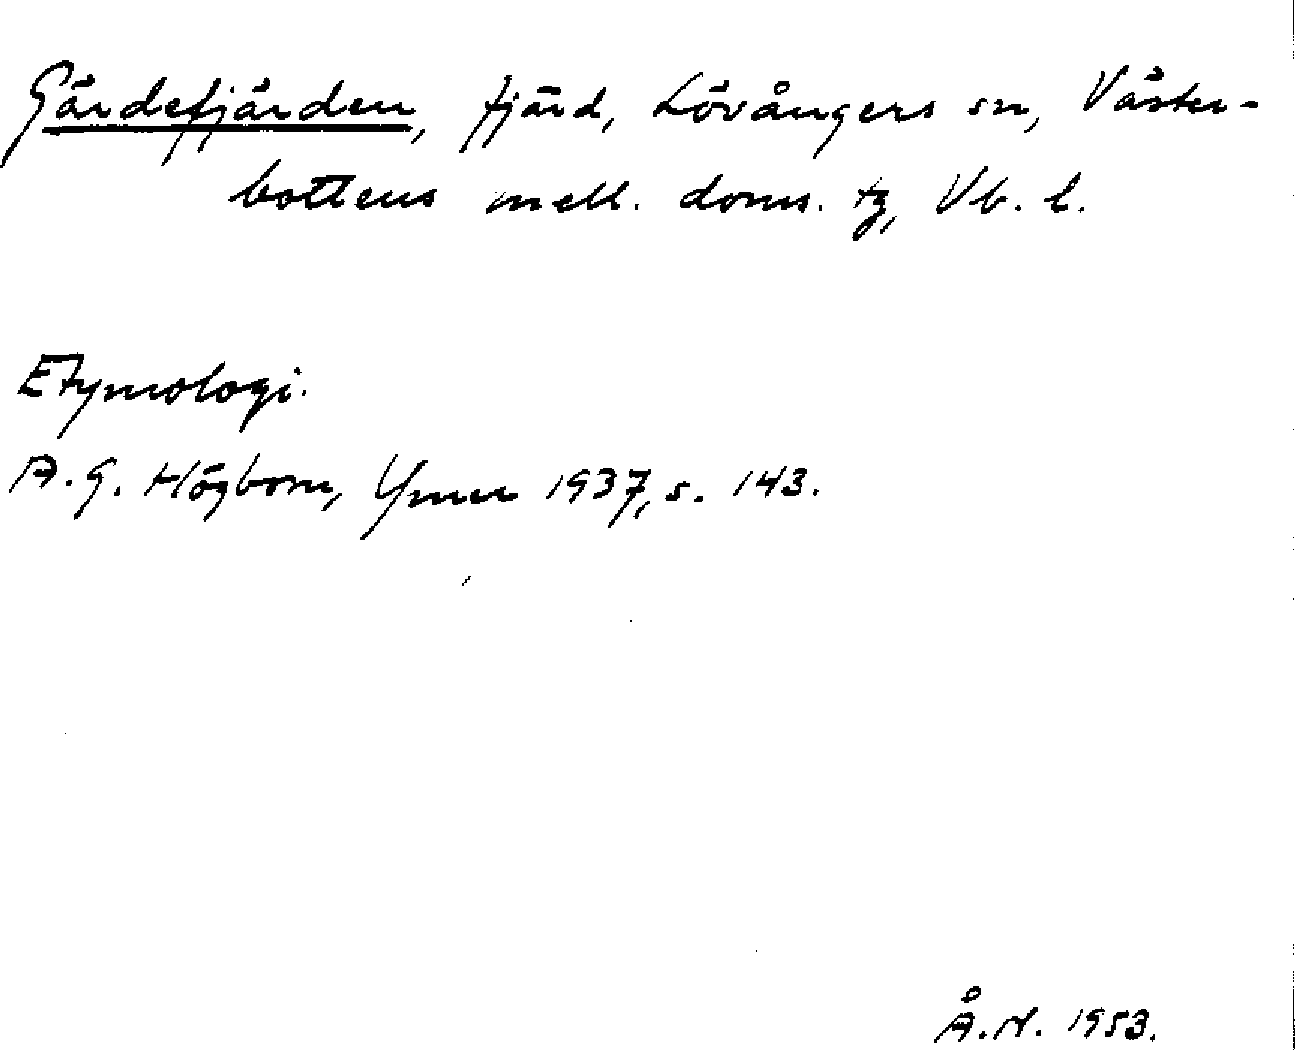 Gärdefjärden, fjärd, Lövångers sn, Väster-
bottens mell. doms. tg, Vb. l.
Etymologi.
A. G. Högbom, Ymer 1937, s. 143.
Å. N. 1953.